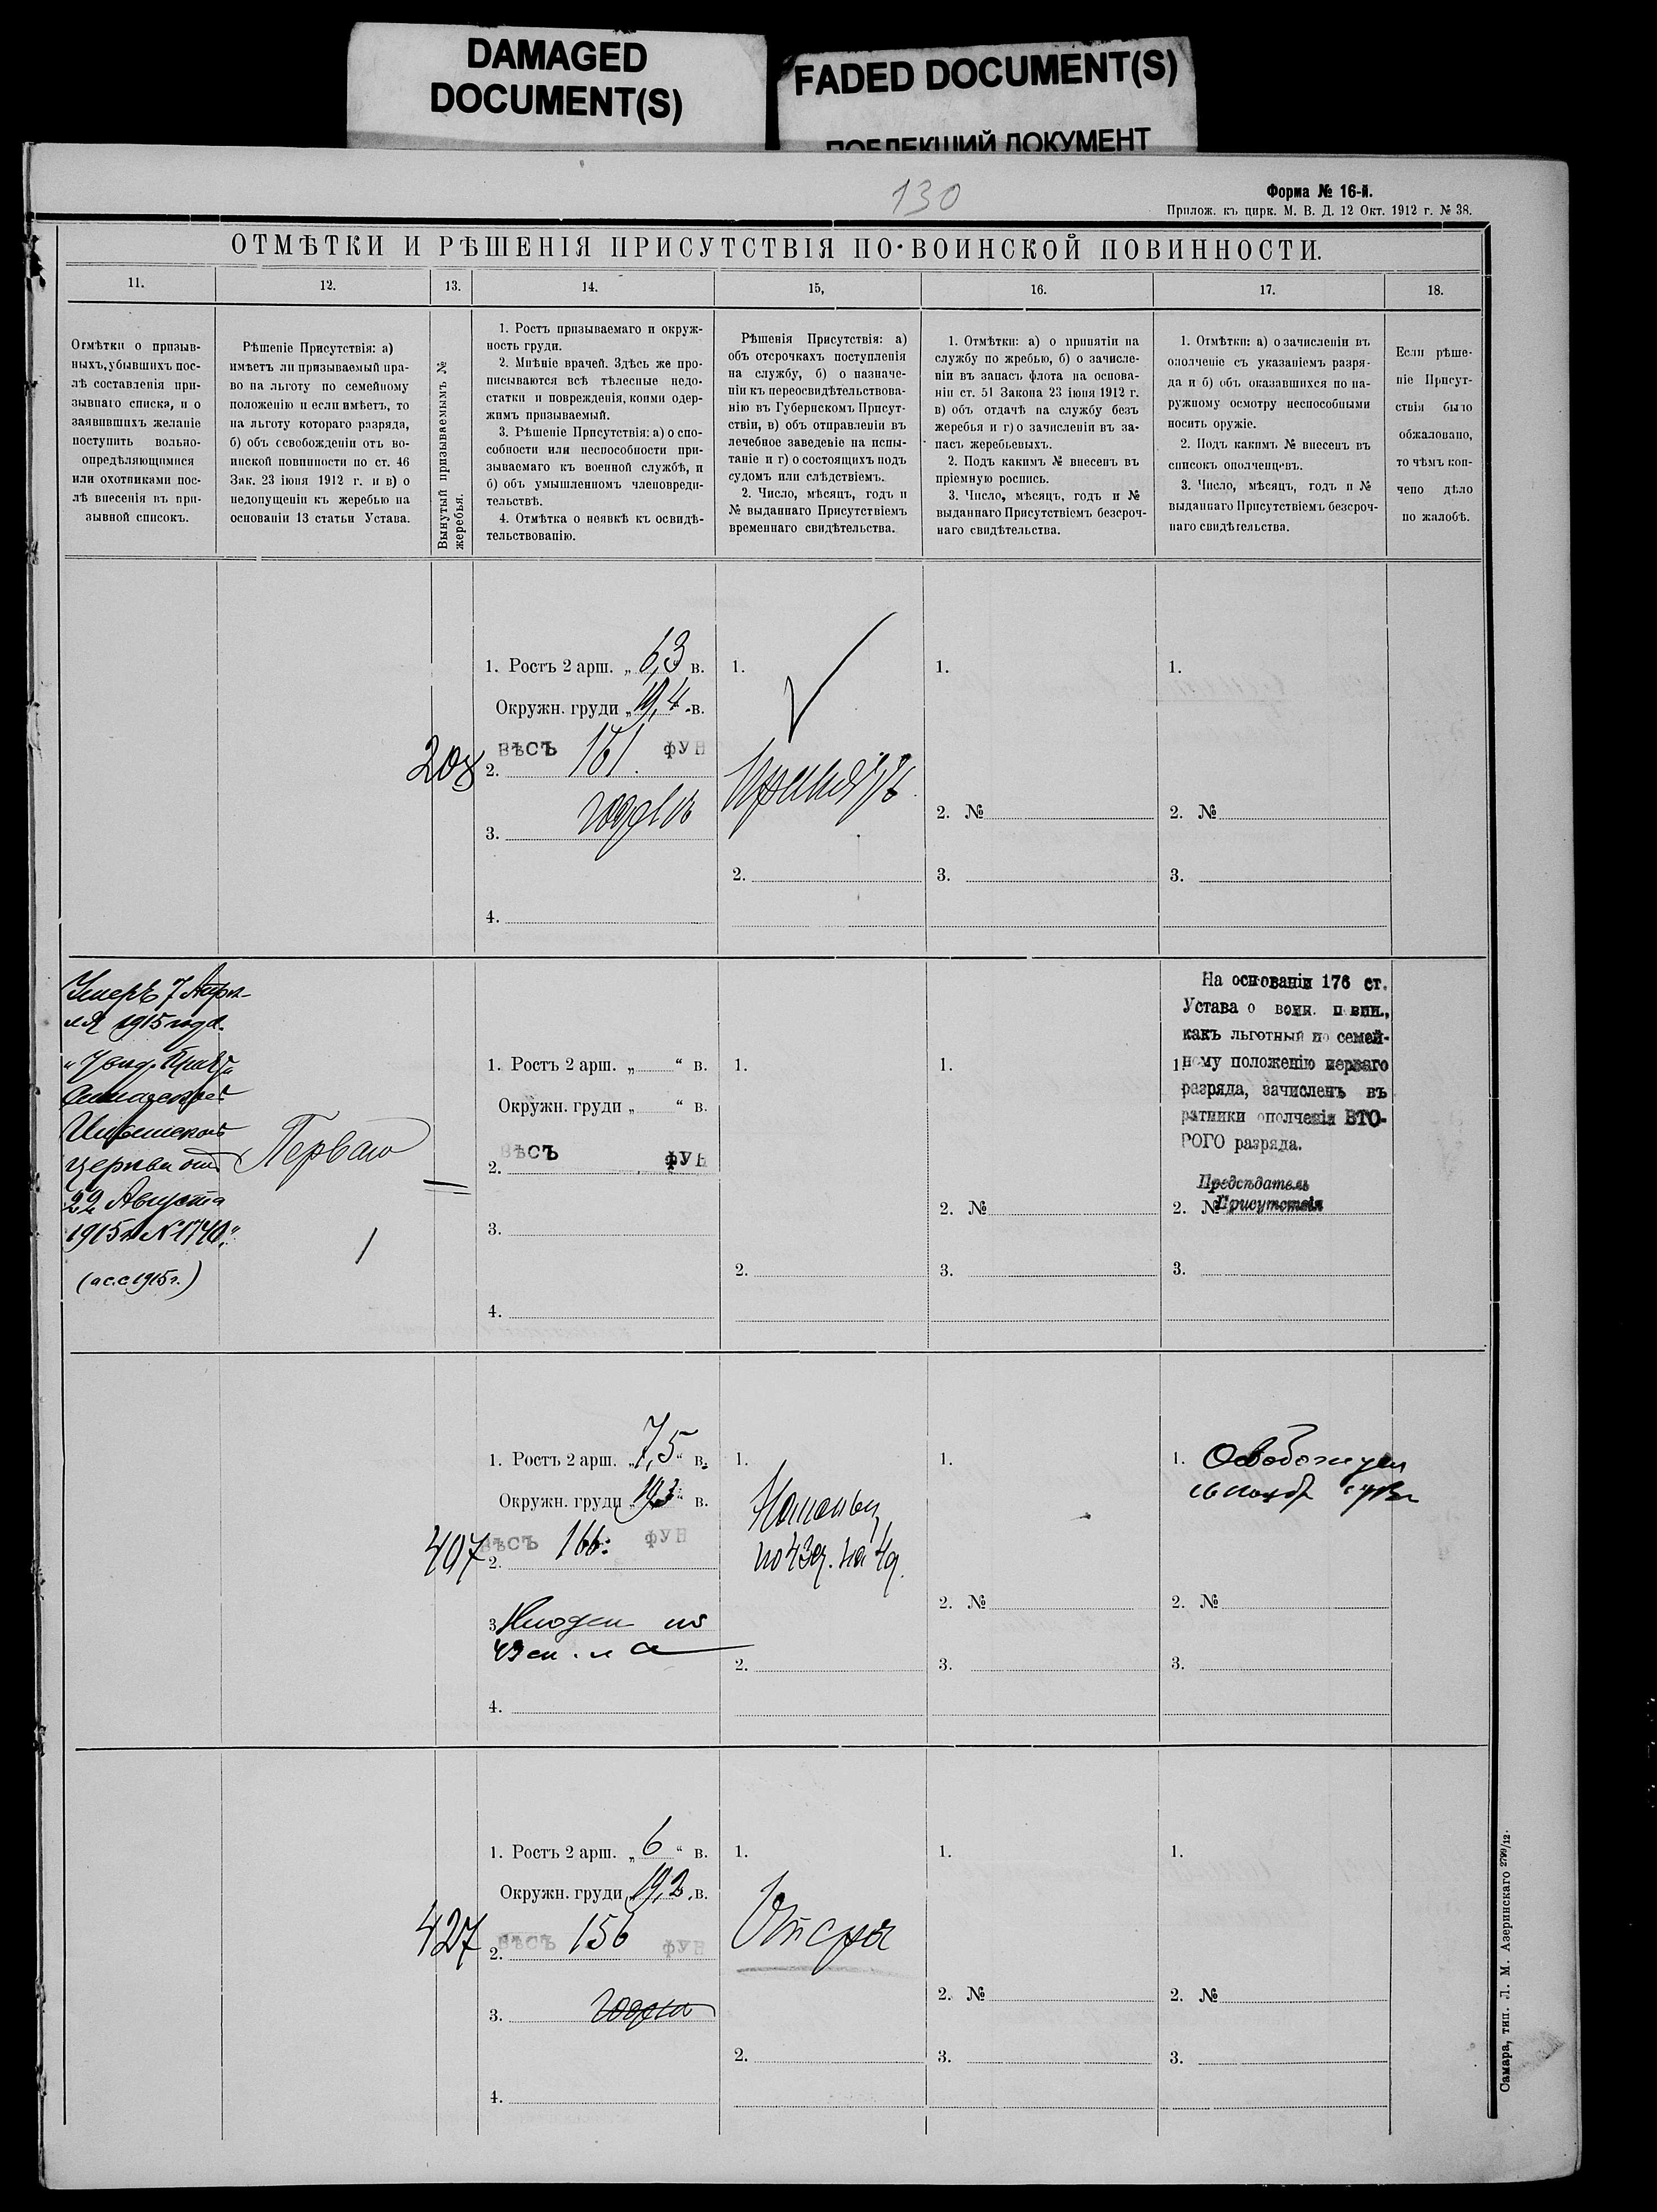 DAMAGED
DOCUMENT(S)
FADED DOCUMENT(S)
ПОБЛЕКШИЙ ДОКУМЕНТ
130
Форма № 16-й.
Прилож. къ цирк. М. В. Д. 12 Окт. 1912 г. № 38.
ОТМѢТКИ И РѢШЕНІЯ ПРИСУТСТВІЯ ПО ВОИНСКОЙ ПОВИННОСТИ.
11.
12.
13.
14.
15,
16.
17.
18.
Отмѣтки о призыв-
ныхъ, убывшихъ пос-
лѣ составленія при-
зывнаго списка, и о
заявившихъ желаніе
поступить вольно-
опредѣляющимися
или охотниками пос-
лѣ внесенія въ при-
зывной списокъ.
Рѣшеніе Присутствія: а)
имѣетъ ли призываемый пра-
во на льготу по семейному
положенію и если имѣетъ, то
на льготу котораго разряда,
б) объ освобожденіи отъ во-
инской повинности по ст. 46
Зак. 23 іюня 1912 г. и в) о
недопущеніи къ жеребью на
основаніи 13 статьи Устава.
Вынутый призываемымъ №
жеребья.
1. Ростъ призываемаго и окруж-
ность груди.
2. Мнѣніе врачей. Здѣсь же про-
писываются всѣ тѣлесные недо-
статки и поврежденія, коими одер-
жимъ призываемый.
3. Рѣшеніе Присутствія: а) о спо-
собности или неспособности при-
зываемаго къ военной службѣ, и
б) объ умышленномъ членовреди-
тельствѣ.
4. Отмѣтка о неявкѣ къ освидѣ-
тельствованію.
Рѣшенія Присутствія: а)
объ отсрочкахъ поступленія
на службу, б) о назначе-
ніи къ переосвидѣтельствова-
нію въ Губернскомъ Присут-
ствіи, в) объ отправленіи въ
лечебное заведеніе на испы-
таніе и г) о состоящихъ подъ
судомъ или слѣдствіемъ.
2. Число, мѣсяцъ, годъ и
№ выданнаго Присутствіемъ
временнаго свидѣтельства.
1. Отмѣтки: а) о принятіи на
службу по жребью, б) о зачисле-
ніи въ запасъ флота на основа-
ніи ст. 51 Закона 23 іюня 1912 г.
в) объ отдачѣ на службу безъ
жеребья и г) о зачисленіи въ за-
пасъ жеребьевыхъ.
2. Подъ какимъ № внесенъ въ
пріемную роспись.
3. Число, мѣсяцъ, годъ и №
выданнаго Присутствіемъ безсроч-
наго свидѣтельства.
1. Отмѣтки: а) о зачисленіи въ
ополченіе съ указаніемъ разря-
да и б) объ оказавшихся по на-
ружному осмотру неспособными
носить оружіе.
2. Подъ какимъ № внесенъ въ
списокъ ополченцевъ.
3. Число, мѣсяцъ, годъ и №
выданнаго Присутствіемъ безсроч-
наго свидѣтельства.
Если рѣше-
ніе Присут-
ствія было
обжаловано,
то чѣмъ кон-
чено дѣло
по жалобѣ.
208
1. Ростъ 2 арш. „ 6,3 в.
Окружн. груди „ 19,4 в.
ВѢСЪ 161. ФУН
2.
годенъ
3.
4.
1.
Принятъ
2.
1.
2. №
3.
1.
2. №
3.
Умеръ 7 Апрѣ-
ля 1915 года
церкви отъ
22 Августа
1915 г. N 1740."
(а с.с. 1915 г.)
Перваго
1. Ростъ 2 арш. „ “ в.
Окружн. груди „ “ в.
ВѢСЪ ФУН
2.
3.
4.
1.
2.
1.
2. №
3.
На основаніи 176 ст.
Устава о воин. повин.,
какъ льготный по семей-
1. ному положенію перваго
разряда, зачисленъ въ
ратники ополченія ВТО-
РОГО разряда.
Предсѣдатель
2. № Присутствія
3.
407
1. Ростъ 2 арш. „ 7,5 “ в.
Окружн. груди „ 19,3 “ в.
ВѢСЪ 166. ФУН
2.
3.
4.
1.
2.
1.
2. №
3.
1. Освобожденъ
2. №
3.
427
1. Ростъ 2 арш. „ 6 “ в.
Окружн. груди „ 19,2 в.
ВѢСЪ 156 ФУН
2.
3. годенъ
4.
1.
Отсроч
2.
1.
2. №
3.
1.
2. №
3.
Самара, тип. Л. М. Азеринскаго 2799/12.